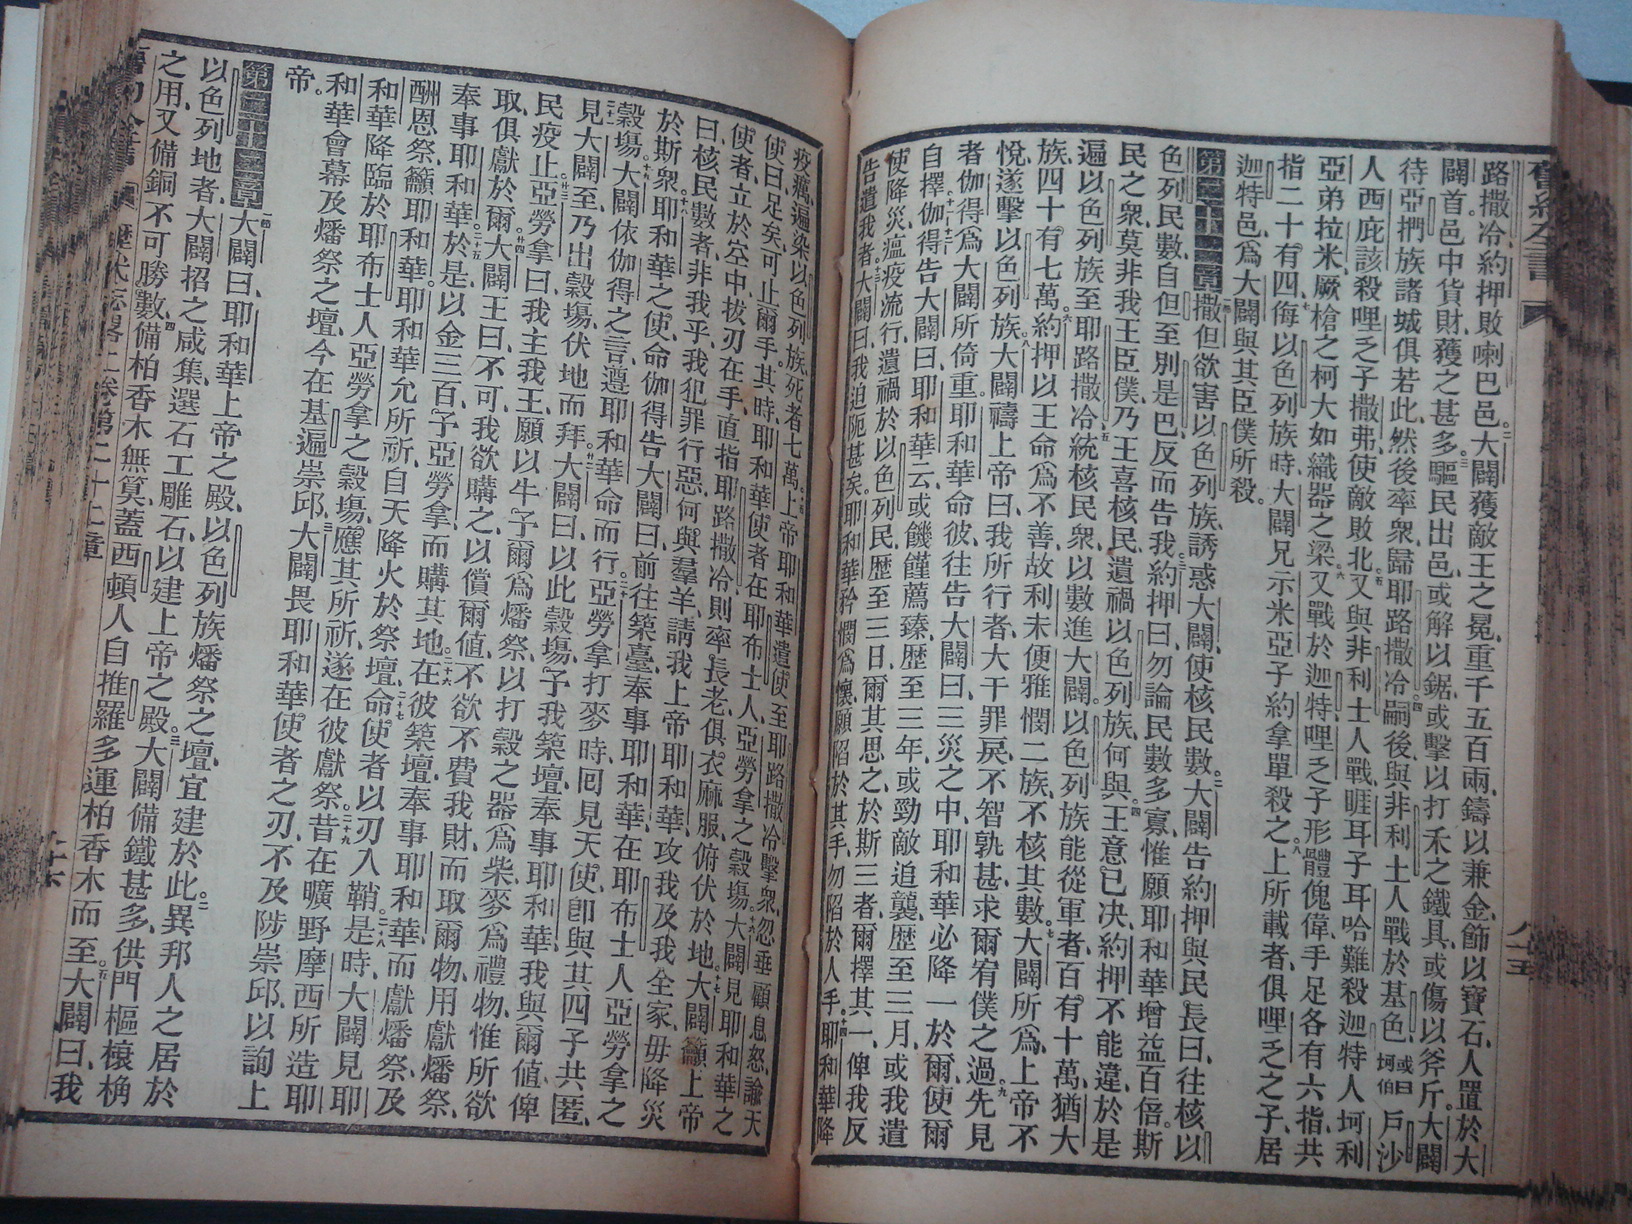 舊約全書
路撒冷約押敗喇巴邑大闢獲敵王之冕重千五百兩鑄以兼金飾以寶石人置於大
闢首邑中貨財獲之甚多驅民出邑或解以鋸或擊以打禾之鐵具或傷以斧斤大闢
待亞捫族諸城俱若此然後率衆歸耶路撒冷嗣後與非利士人戰於基色或曰坷伯戶沙
人西庇該殺哩乏子撒弗使敵敗北又與非利士人戰睚耳子耳哈難殺迦特人坷利
亞弟拉米厥槍之柯大如織器之梁又戰於迦特哩乏子形體傀偉手足各有六指共
指二十有四侮以色列族時大闢兄示米亞子約拿單殺之上所載者俱哩乏之子居
迦特邑爲大闢與其臣僕所殺
第二十一章 撒但欲害以色列族誘惑大闢使核民數大闢告約押與民長曰往核以
色列民數自但至別是巴反而告我約押曰勿論民數多寡惟願耶和華增益百倍斯
民之衆莫非我王臣僕乃王喜核民遺禍以色列族何與王意已决約押不能違於是
遍以色列族至耶路撒冷統核民衆以數進大闢以色列族能從軍者百有十萬猶大
族四十有七萬約押以王命爲不善故利未便雅憫二族不核其數大闢所爲上帝不
悅遂擊以色列族大闢禱上帝曰我所行者大干罪戾不智孰甚求爾宥僕之過先見
者伽得爲大闢所倚重耶和華命彼往告大闢曰三災之中耶和華必降一於爾使爾
自擇伽得告大闢曰耶和華云或饑饉薦臻歷至三年或勁敵追襲歷至三月或我遣
使降災瘟疫流行遺禍於以色列民歷至三日爾其思之於斯三者爾擇其一俾我反
告遣我者大闢曰我迫阨甚矣耶和華矜憫爲懷願陷於其手勿陷於人手耶和華降
八十五
疫癘遍染以色列族死者七萬上帝耶和華遣使至耶路撒冷擊衆忽垂顧息怒諭天
使曰足矣可止爾手其時耶和華使者在耶布士人亞勞拿之穀塲大闢見耶和華之
使者立於空中拔刃在手直指耶路撒冷則率長老俱衣麻服俯伏於地大闢籲上帝
曰核民數者非我乎我犯罪行惡何與羣羊請我上帝耶和華攻我及我全家毋降災
於斯衆耶和華之使命伽得告大闢曰前往築臺奉事耶和華在耶布士人亞勞拿之
穀塲大闢依伽得之言遵耶和華命而行亞勞拿打麥時回見天使卽與其四子共匿
見大闢至乃出穀塲伏地而拜大闢曰以此穀塲予我築壇奉事耶和華我與爾値俾
民疫止亞勞拿曰我主我王願以牛予爾爲燔祭以打穀之器爲柴麥爲禮物惟所欲
取俱獻於爾大闢王曰不可我欲購之以償爾値不欲不費我財而取爾物用獻燔祭
奉事耶和華於是以金三百予亞勞拿而購其地在彼築壇奉事耶和華而獻燔祭及
酬恩祭籲耶和華耶和華允所祈自天降火於祭壇命使者以刃入鞘是時大闢見耶
和華降臨於耶布士人亞勞拿之穀塲應其所祈遂在彼獻祭昔在曠野摩西所造耶
和華會幕及燔祭之壇今在基遍崇邱大闢畏耶和華使者之刃不及陟崇邱以詢上
帝
第二十二章 大闢曰耶和華上帝之殿以色列族燔祭之壇宜建於此異邦人之居於
以色列地者大闢招之咸集選石工雕石以建上帝之殿大闢備鐵甚多供門樞榱桷
之用又備銅不可勝數備柏香木無算蓋西頓人自推羅多運柏香木而至大闢曰我
歷代志畧上卷第二十二章